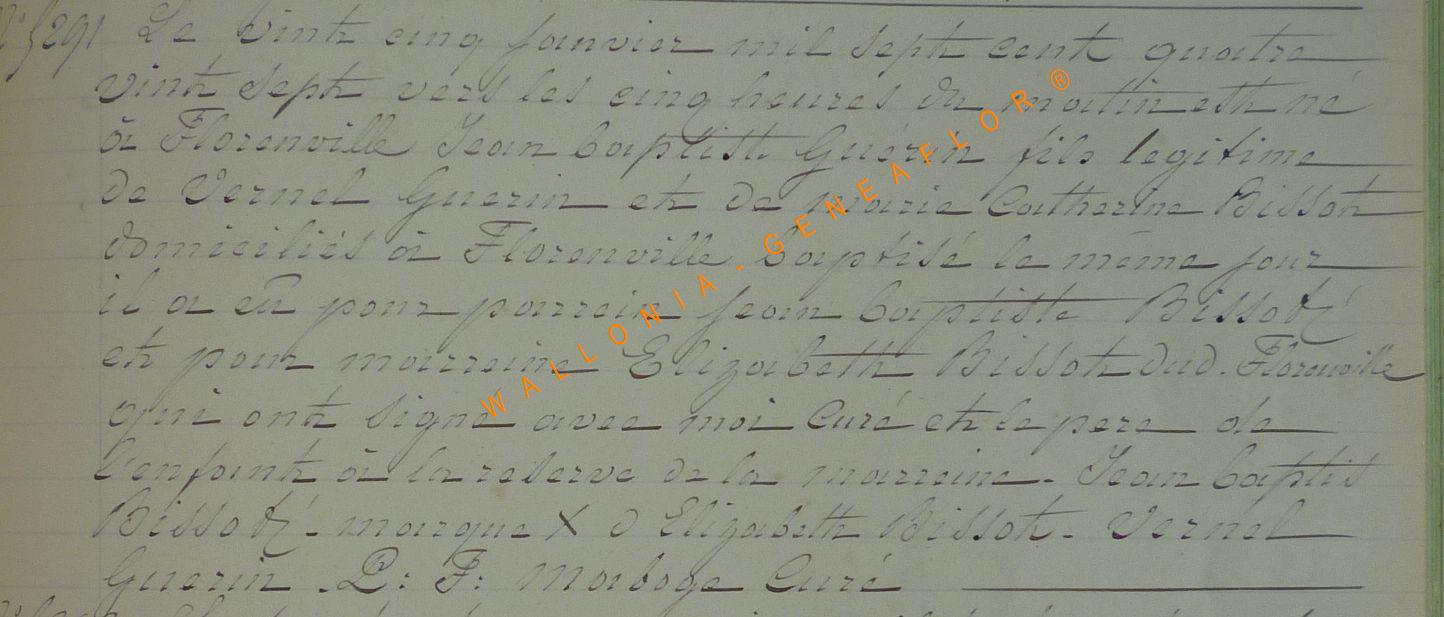 N° 5291 Le vint cinq janvier mil sept cent quatre
vint sept vers les cinq heures du matin est né
à Florenville Jean baptiste Guérin fils legitime
de Vernel Guerin et de marie Catherine Bissot
domiciliés à Florenville baptisé le même jour
il a eû pour parrein jean baptiste Bissot
et pour marreine Elizabeth Bissot dud. Florenville
qui ont signé avec moi Curé et le pere de
l'enfant à la reserve de la marreine. Jean baptis
Bissot . marque X d Elizabeth Bissot . Vernel
Guerin . P: F: Maboge Curé
WALLONIA-GENEAFLOR®